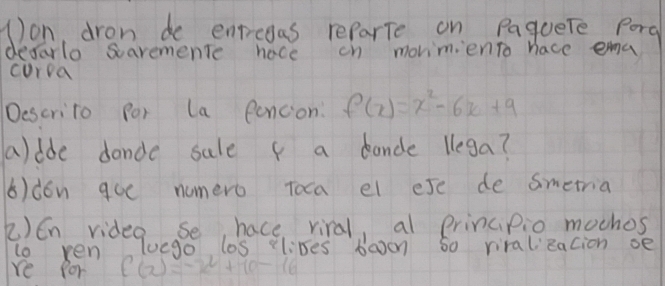 1) on dron de entregas reparte on paquete para
dejarlo suaremente hace on movimiento hace ema
curva
Descrito por la foncion: f(x)=x²-6x+9
a) dde donde sale y a donde llega?
b) con que numero toca el eje de simetria
2) En video se hace viral, al principio mochos
lo ven luego los likes bajan so viralizacion se
ve por f(x)=